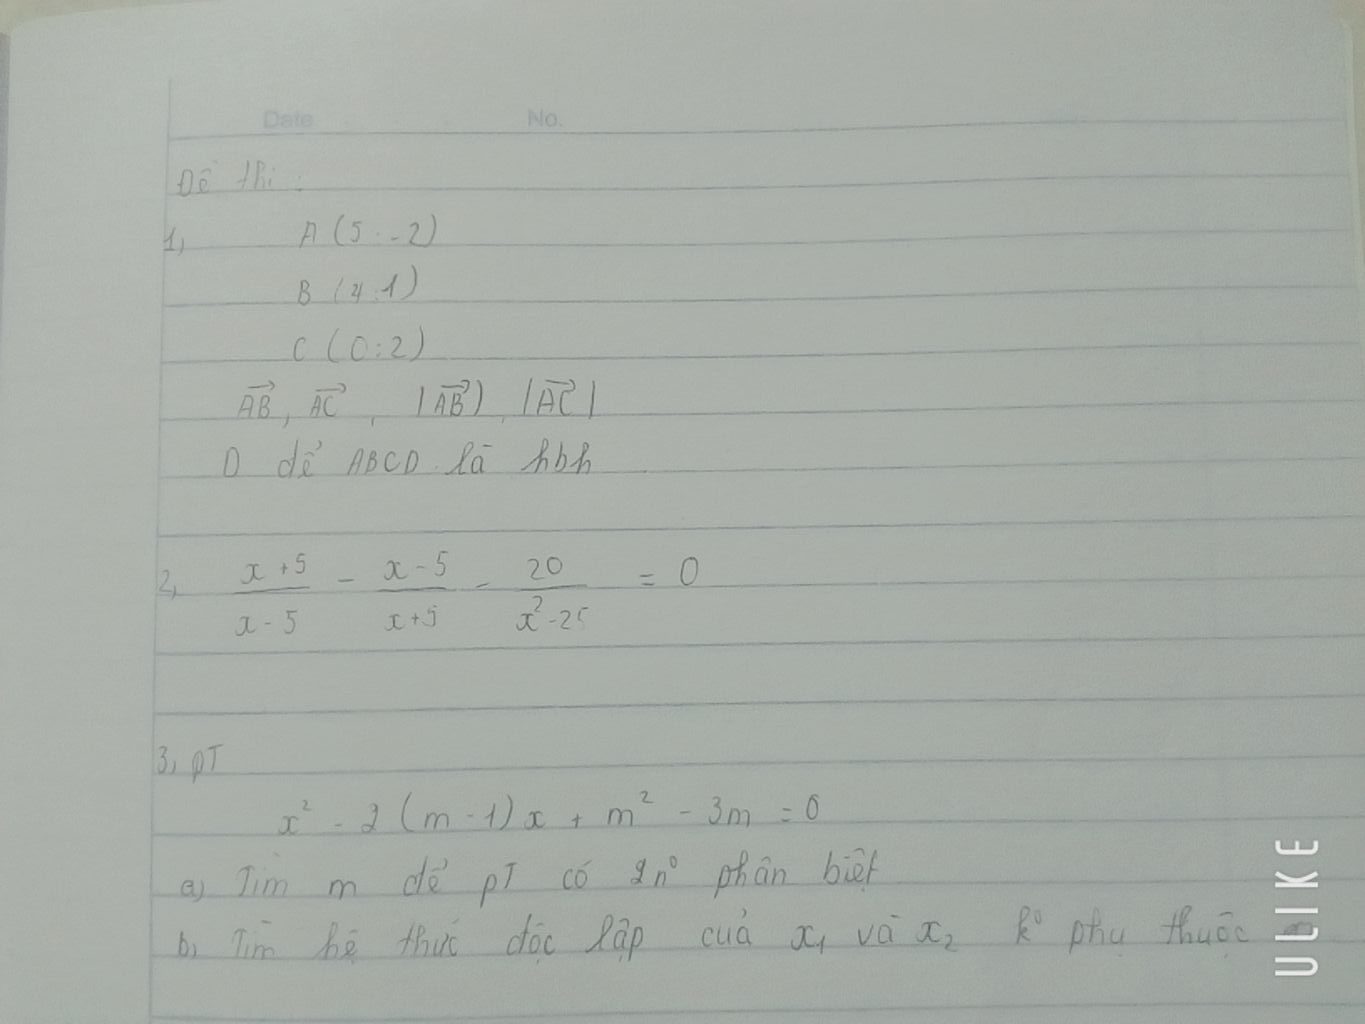 Date No.
Đề thi :
1, A (5 : -2)
B (4 : 1)
C (0 : 2)
AB→, AC→, |AB→), |AC→|
D để ABCD là hbh
2, (x+5)/(x-5) - (x-5)/(x+5) - 20/(x²-25) = 0
3, pT
x² - 2(m-1)x + m² - 3m = 0
a) Tìm m để pT có 2n⁰ phân biệt
b) Tìm hệ thức độc lập của x₁ và x₂ k⁰ phụ thuộc
ULIKE